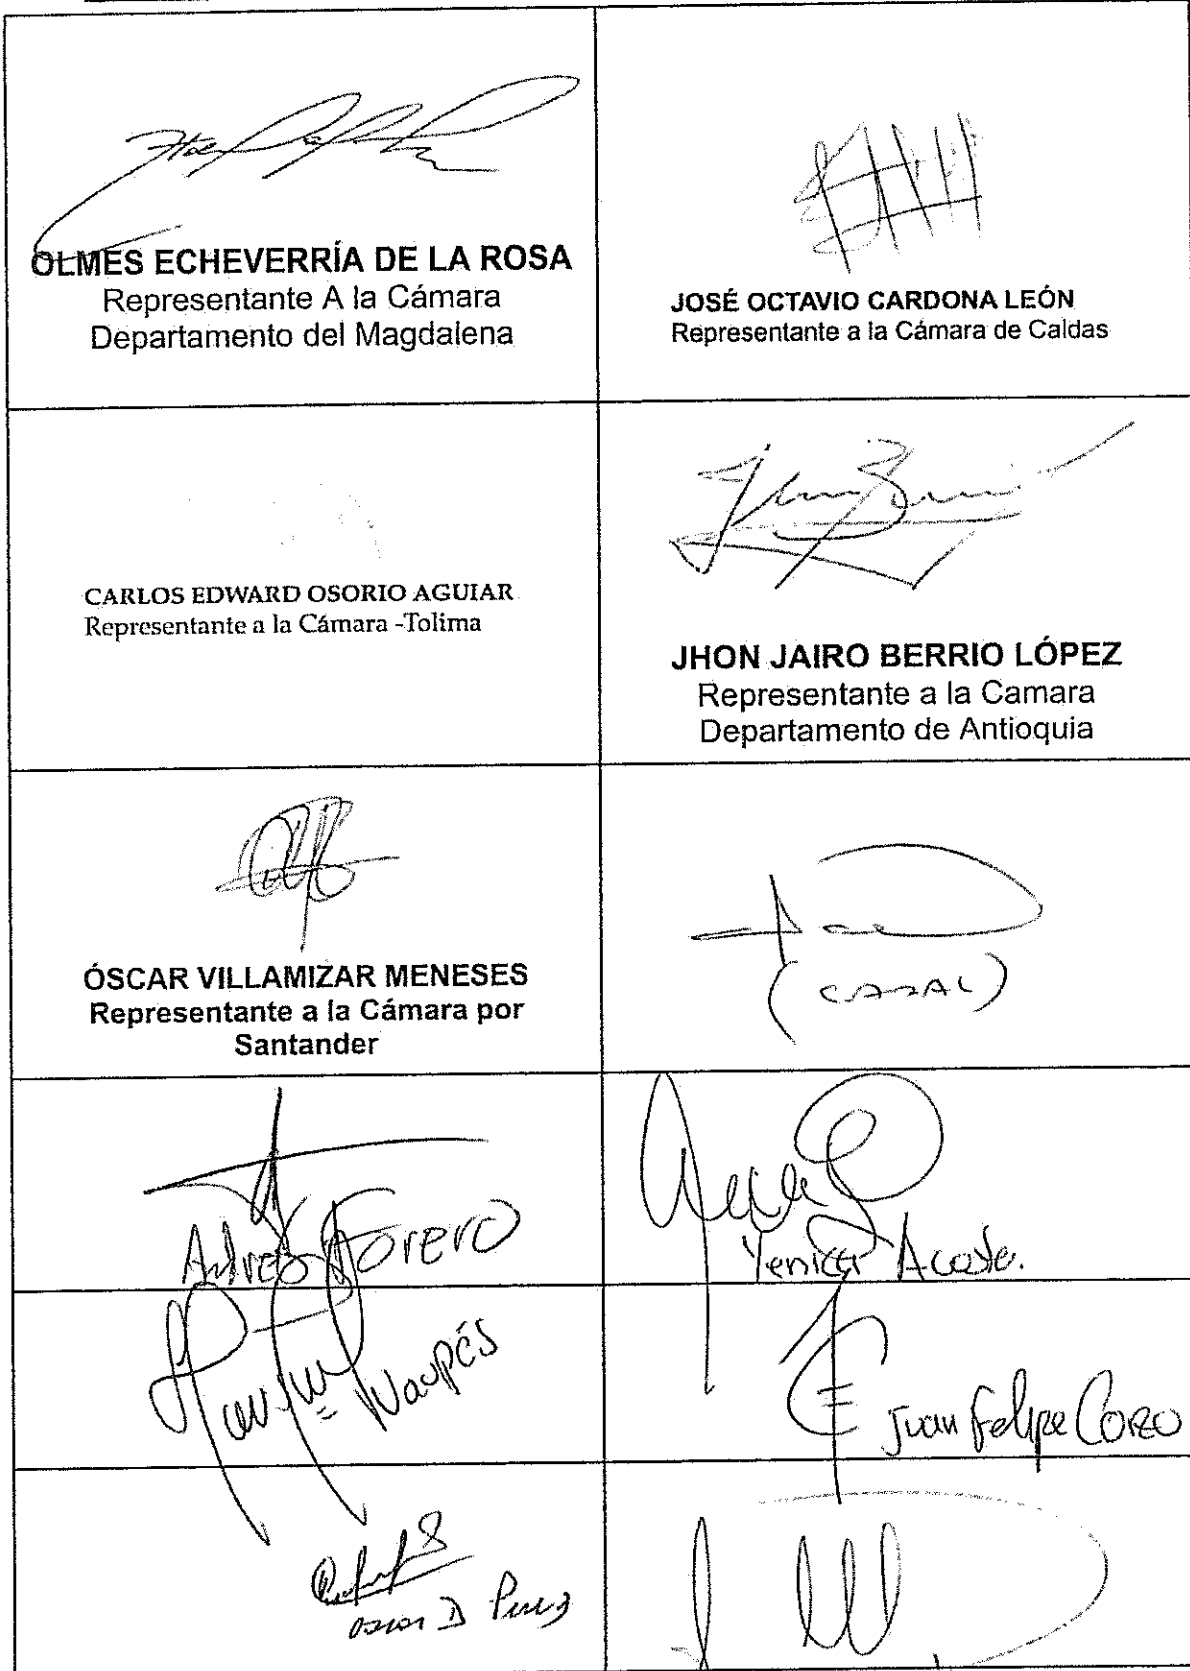 OLMES ECHEVERRÍA DE LA ROSA
Representante A la Cámara
Departamento del Magdalena
JOSÉ OCTAVIO CARDONA LEÓN
Representante a la Cámara de Caldas
CARLOS EDWARD OSORIO AGUIAR
Representante a la Cámara -Tolima
JHON JAIRO BERRIO LÓPEZ
Representante a la Camara
Departamento de Antioquia
ÓSCAR VILLAMIZAR MENESES
Representante a la Cámara por
Santander
Andrés Forero
Yenica Acosta.
Vaupés
Juan Felipe Corzo
Oscar D Perez